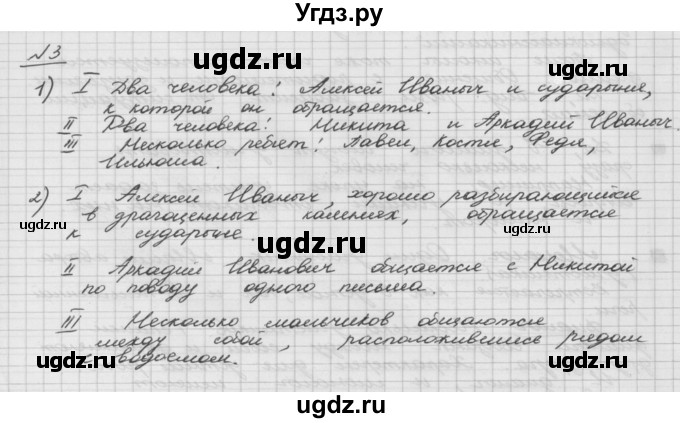 Угдз.ру
№3
1) I Два человека: Алексей Иваныч и сударыня,
к которой он обращается.
II Два человека: Никита и Аркадий Иваныч.
III Несколько ребят: Павел, Костя, Федя,
Ильюша.
2) I Алексей Иваныч, хорошо разбирающийся
в драгоценных камениях, обращается
к сударыне.
II Аркадий Иванович общается с Никитой
по поводу одного письма.
III Несколько мальчиков общаются
между собой, расположившиеся рядом
с водоемом.
gdz.ru
ugdz.ru
ugdz.ru
ugdz.ru
ugdz.ru
ugdz.ru
ugdz.ru